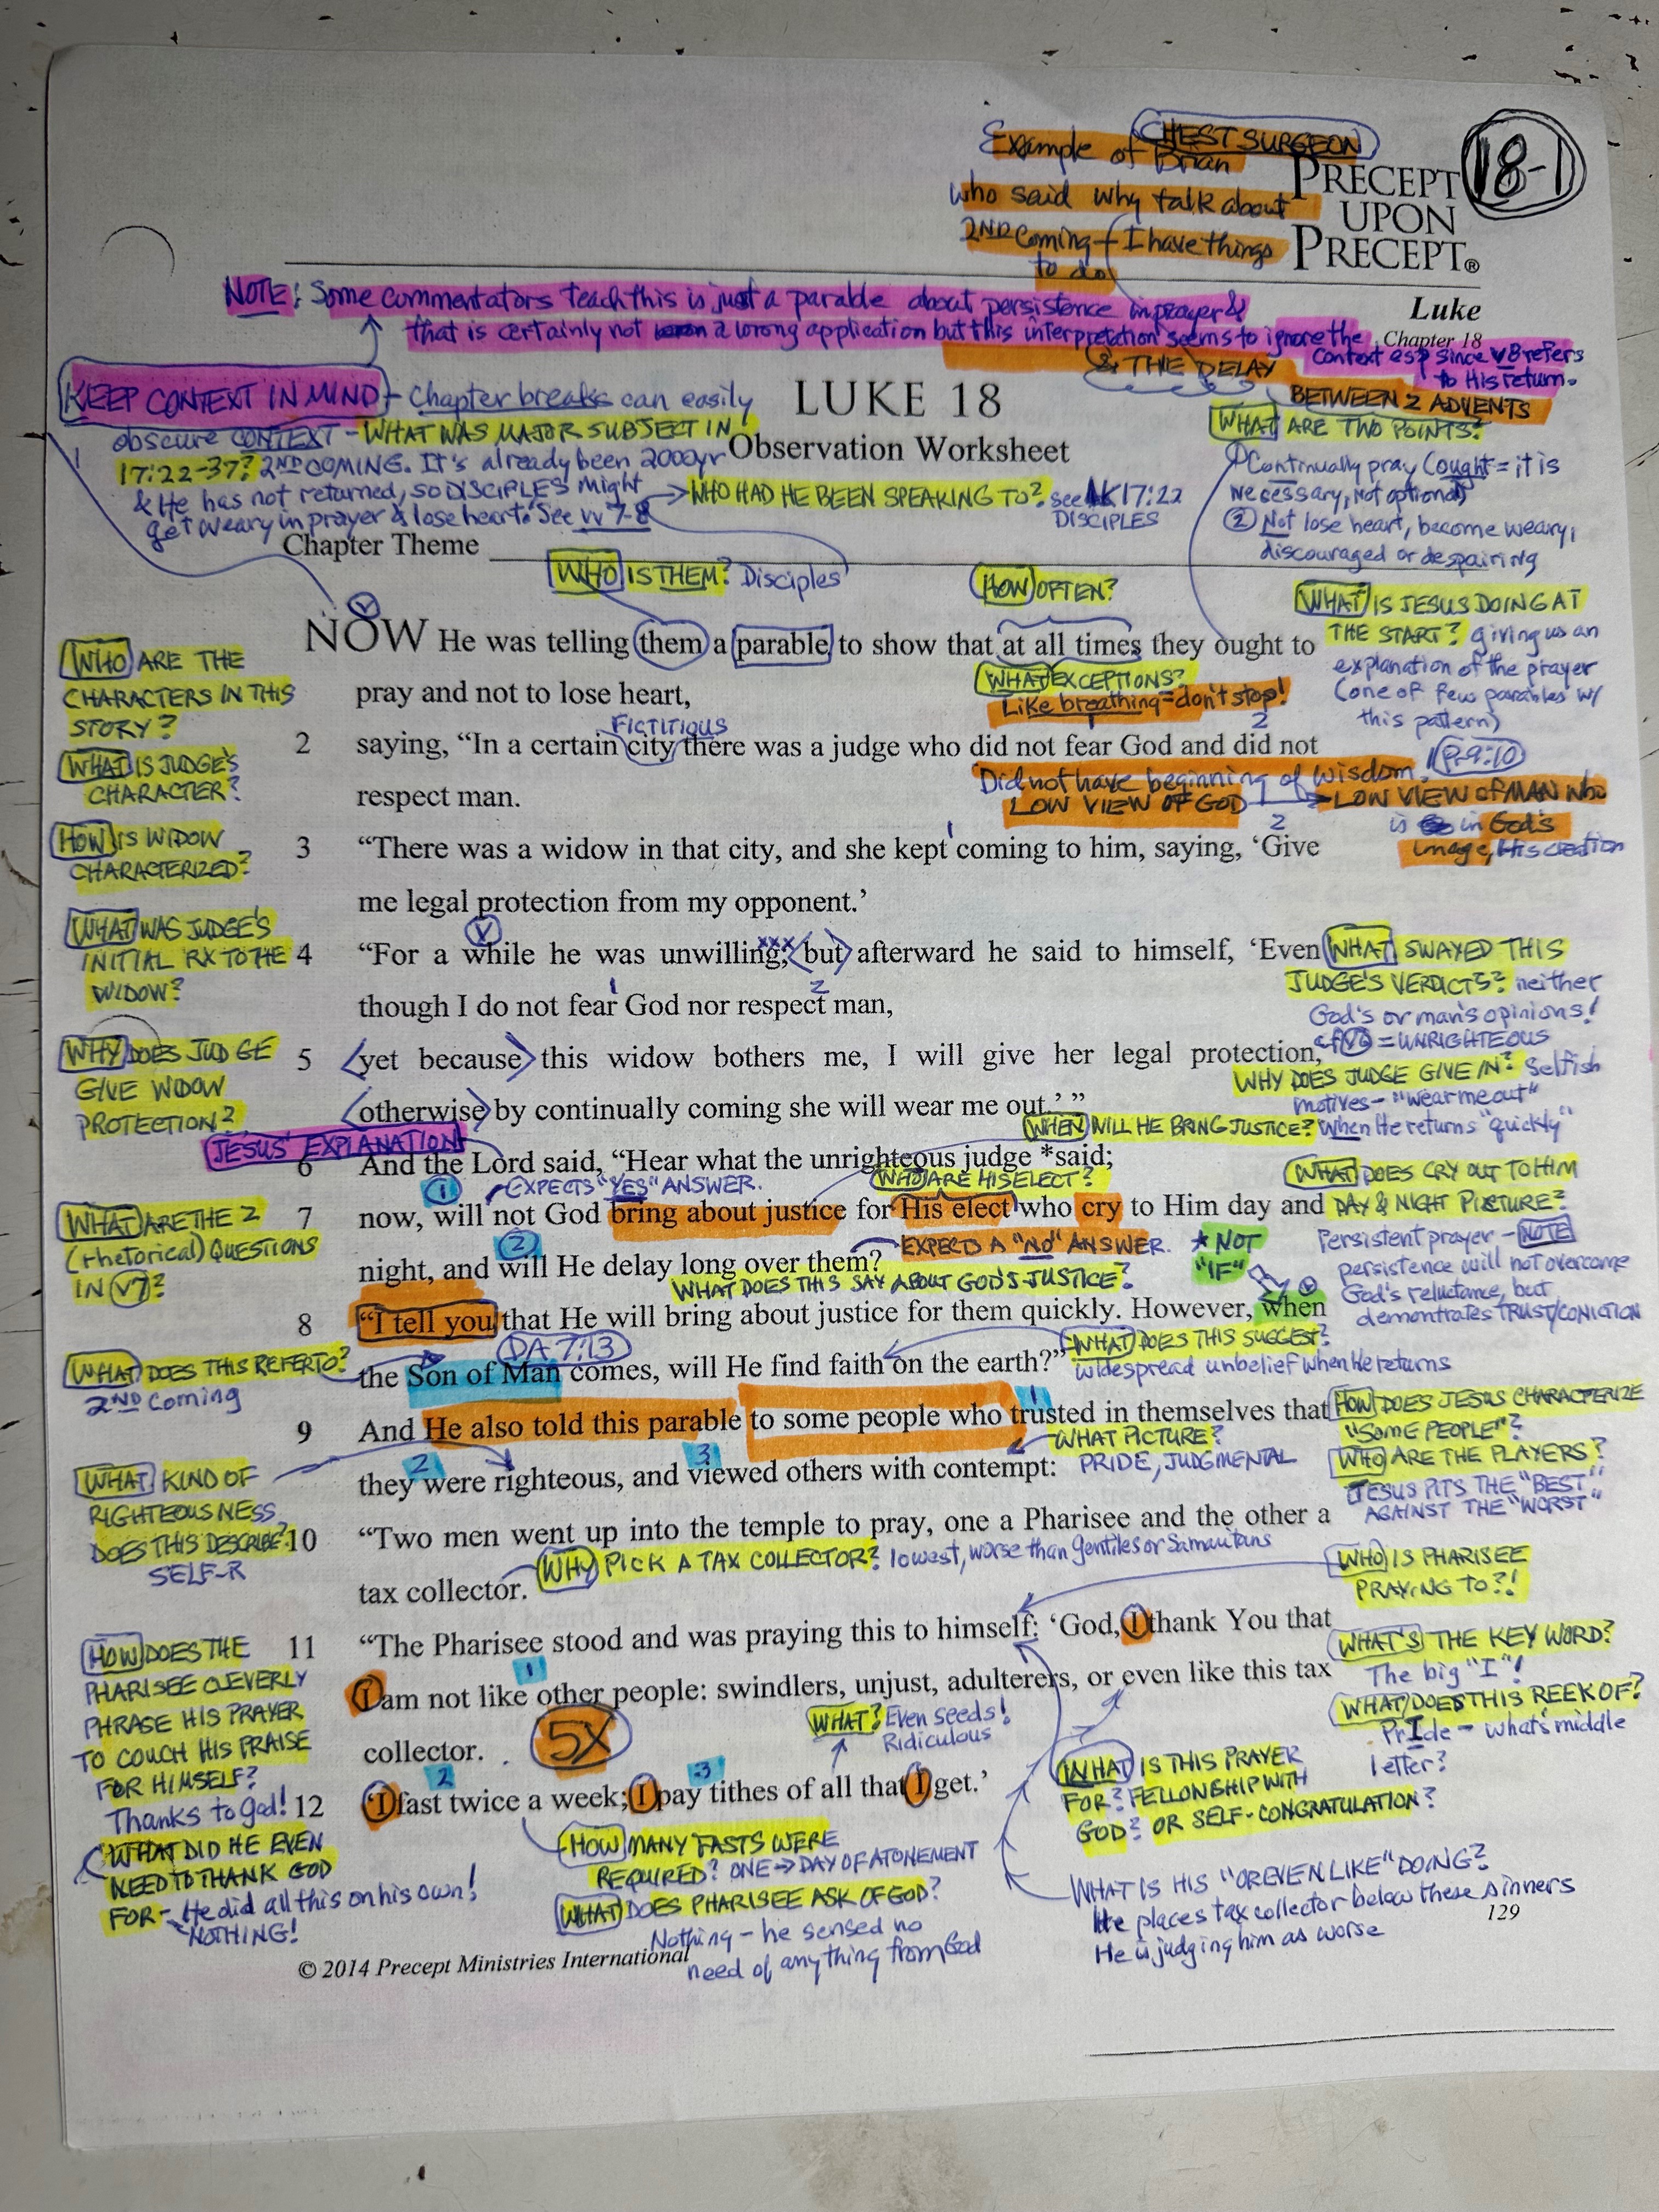 CHEST SURGEON
Example of Brian
who said why talk about
2ND Coming - I have things
to do
18-1
PRECEPT
UPON
PRECEPT®
Luke
Chapter 18
NOTE: Some commentators teach this is just a parable about persistence in prayer &
that is certainly not a wrong application but this interpretation seems to ignore the
context esp since v8 refers
to His return.
& THE DELAY
BETWEEN 2 ADVENTS
KEEP CONTEXT IN MIND - Chapter breaks can easily
obscure CONTEXT - WHAT WAS MAJOR SUBJECT IN
17:22-37? 2ND COMING. It's already been 2000yr
& He has not returned, so DISCIPLES might
get weary in prayer & lose heart. See vv 7-8
WHO HAD HE BEEN SPEAKING TO? see LK 17:22
DISCIPLES
LUKE 18
Observation Worksheet
WHAT ARE TWO POINTS?
① Continually pray (ought = it is
necessary, not optional)
② Not lose heart, become weary,
discouraged or despairing
Chapter Theme
WHO IS THEM? Disciples
HOW OFTEN?
WHAT IS JESUS DOING AT
THE START? giving us an
explanation of the prayer
(one of few parables w/
this pattern)
NOW He was telling them a parable to show that at all times they ought to
pray and not to lose heart,
WHAT EXCEPTIONS?
Like breathing = don't stop!
WHO ARE THE
CHARACTERS IN THIS
STORY?
FICTITIOUS
1 2
2 saying, “In a certain city there was a judge who did not fear God and did not
respect man.
WHAT IS JUDGE'S
CHARACTER?
Did not have beginning of wisdom. Pr 9:10
LOW VIEW OF GOD → LOW VIEW OF MAN who
is in God's
image, His creation
HOW IS WIDOW
CHARACTERIZED?
1 2
3 “There was a widow in that city, and she kept coming to him, saying, ‘Give
me legal protection from my opponent.’
WHAT WAS JUDGE'S
INITIAL RX TO THE
WIDOW?
4 “For a while he was unwilling; but afterward he said to himself, ‘Even
1 2
though I do not fear God nor respect man,
WHAT SWAYED THIS
JUDGE'S VERDICTS? neither
God's or man's opinions!
cf v6 = UNRIGHTEOUS
WHY DOES JUDGE
GIVE WIDOW
PROTECTION?
5 yet because this widow bothers me, I will give her legal protection,
otherwise by continually coming she will wear me out.’ ”
WHY DOES JUDGE GIVE IN? Selfish
motives - "wear me out"
WHEN WILL HE BRING JUSTICE? When He returns "quickly"
JESUS' EXPLANATION
6 And the Lord said, “Hear what the unrighteous judge *said;
① EXPECTS "YES" ANSWER.
WHO ARE HIS ELECT?
WHAT DOES CRY OUT TO HIM
DAY & NIGHT PICTURE?
Persistent prayer - NOTE
persistence will not overcome
God's reluctance, but
demontrates TRUST/CONICTION
WHAT ARE THE 2
(rhetorical) QUESTIONS
IN V7?
7 now, will not God bring about justice for His elect who cry to Him day and
② EXPECTS A "NO" ANSWER.
night, and will He delay long over them?
WHAT DOES THIS SAY ABOUT GOD'S JUSTICE?
* NOT
"IF"
8 “I tell you that He will bring about justice for them quickly. However, when
DA 7:13
the Son of Man comes, will He find faith on the earth?”
WHAT DOES THIS SUGGEST?
widespread unbelief when He returns
WHAT DOES THIS REFER TO?
2ND Coming
1
9 And He also told this parable to some people who trusted in themselves that
2 3
they were righteous, and viewed others with contempt:
WHAT PICTURE?
PRIDE, JUDGMENTAL
HOW DOES JESUS CHARACTERIZE
"SOME PEOPLE"?
WHO ARE THE PLAYERS?
JESUS PITS THE "BEST"
AGAINST THE "WORST"
WHAT KIND OF
RIGHTEOUSNESS
DOES THIS DESCRIBE?
SELF-R
10 “Two men went up into the temple to pray, one a Pharisee and the other a
tax collector.
WHY PICK A TAX COLLECTOR? lowest, worse than gentiles or Samaritans
WHO IS PHARISEE
PRAYING TO?!
11 “The Pharisee stood and was praying this to himself: ‘God, I thank You that
1
I am not like other people: swindlers, unjust, adulterers, or even like this tax
collector.
5X
WHAT? Even seeds!
Ridiculous
HOW DOES THE
PHARISEE CLEVERLY
PHRASE HIS PRAYER
TO COUCH HIS PRAISE
FOR HIMSELF?
Thanks to God!
WHAT'S THE KEY WORD?
The big "I"!
WHAT DOES THIS REEK OF?
PrIde - what's middle
letter?
2 3
12 ‘I fast twice a week; I pay tithes of all that I get.’
WHAT IS THIS PRAYER
FOR? FELLOWSHIP WITH
GOD? OR SELF-CONGRATULATION?
WHAT DID HE EVEN
NEED TO THANK GOD
FOR - He did all this on his own!
NOTHING!
HOW MANY FASTS WERE
REQUIRED? ONE → DAY OF ATONEMENT
WHAT DOES PHARISEE ASK OF GOD?
Nothing - he sensed no
need of anything from God
WHAT IS HIS "OR EVEN LIKE" DOING?
He places tax collector below these sinners
He is judging him as worse
129
© 2014 Precept Ministries International